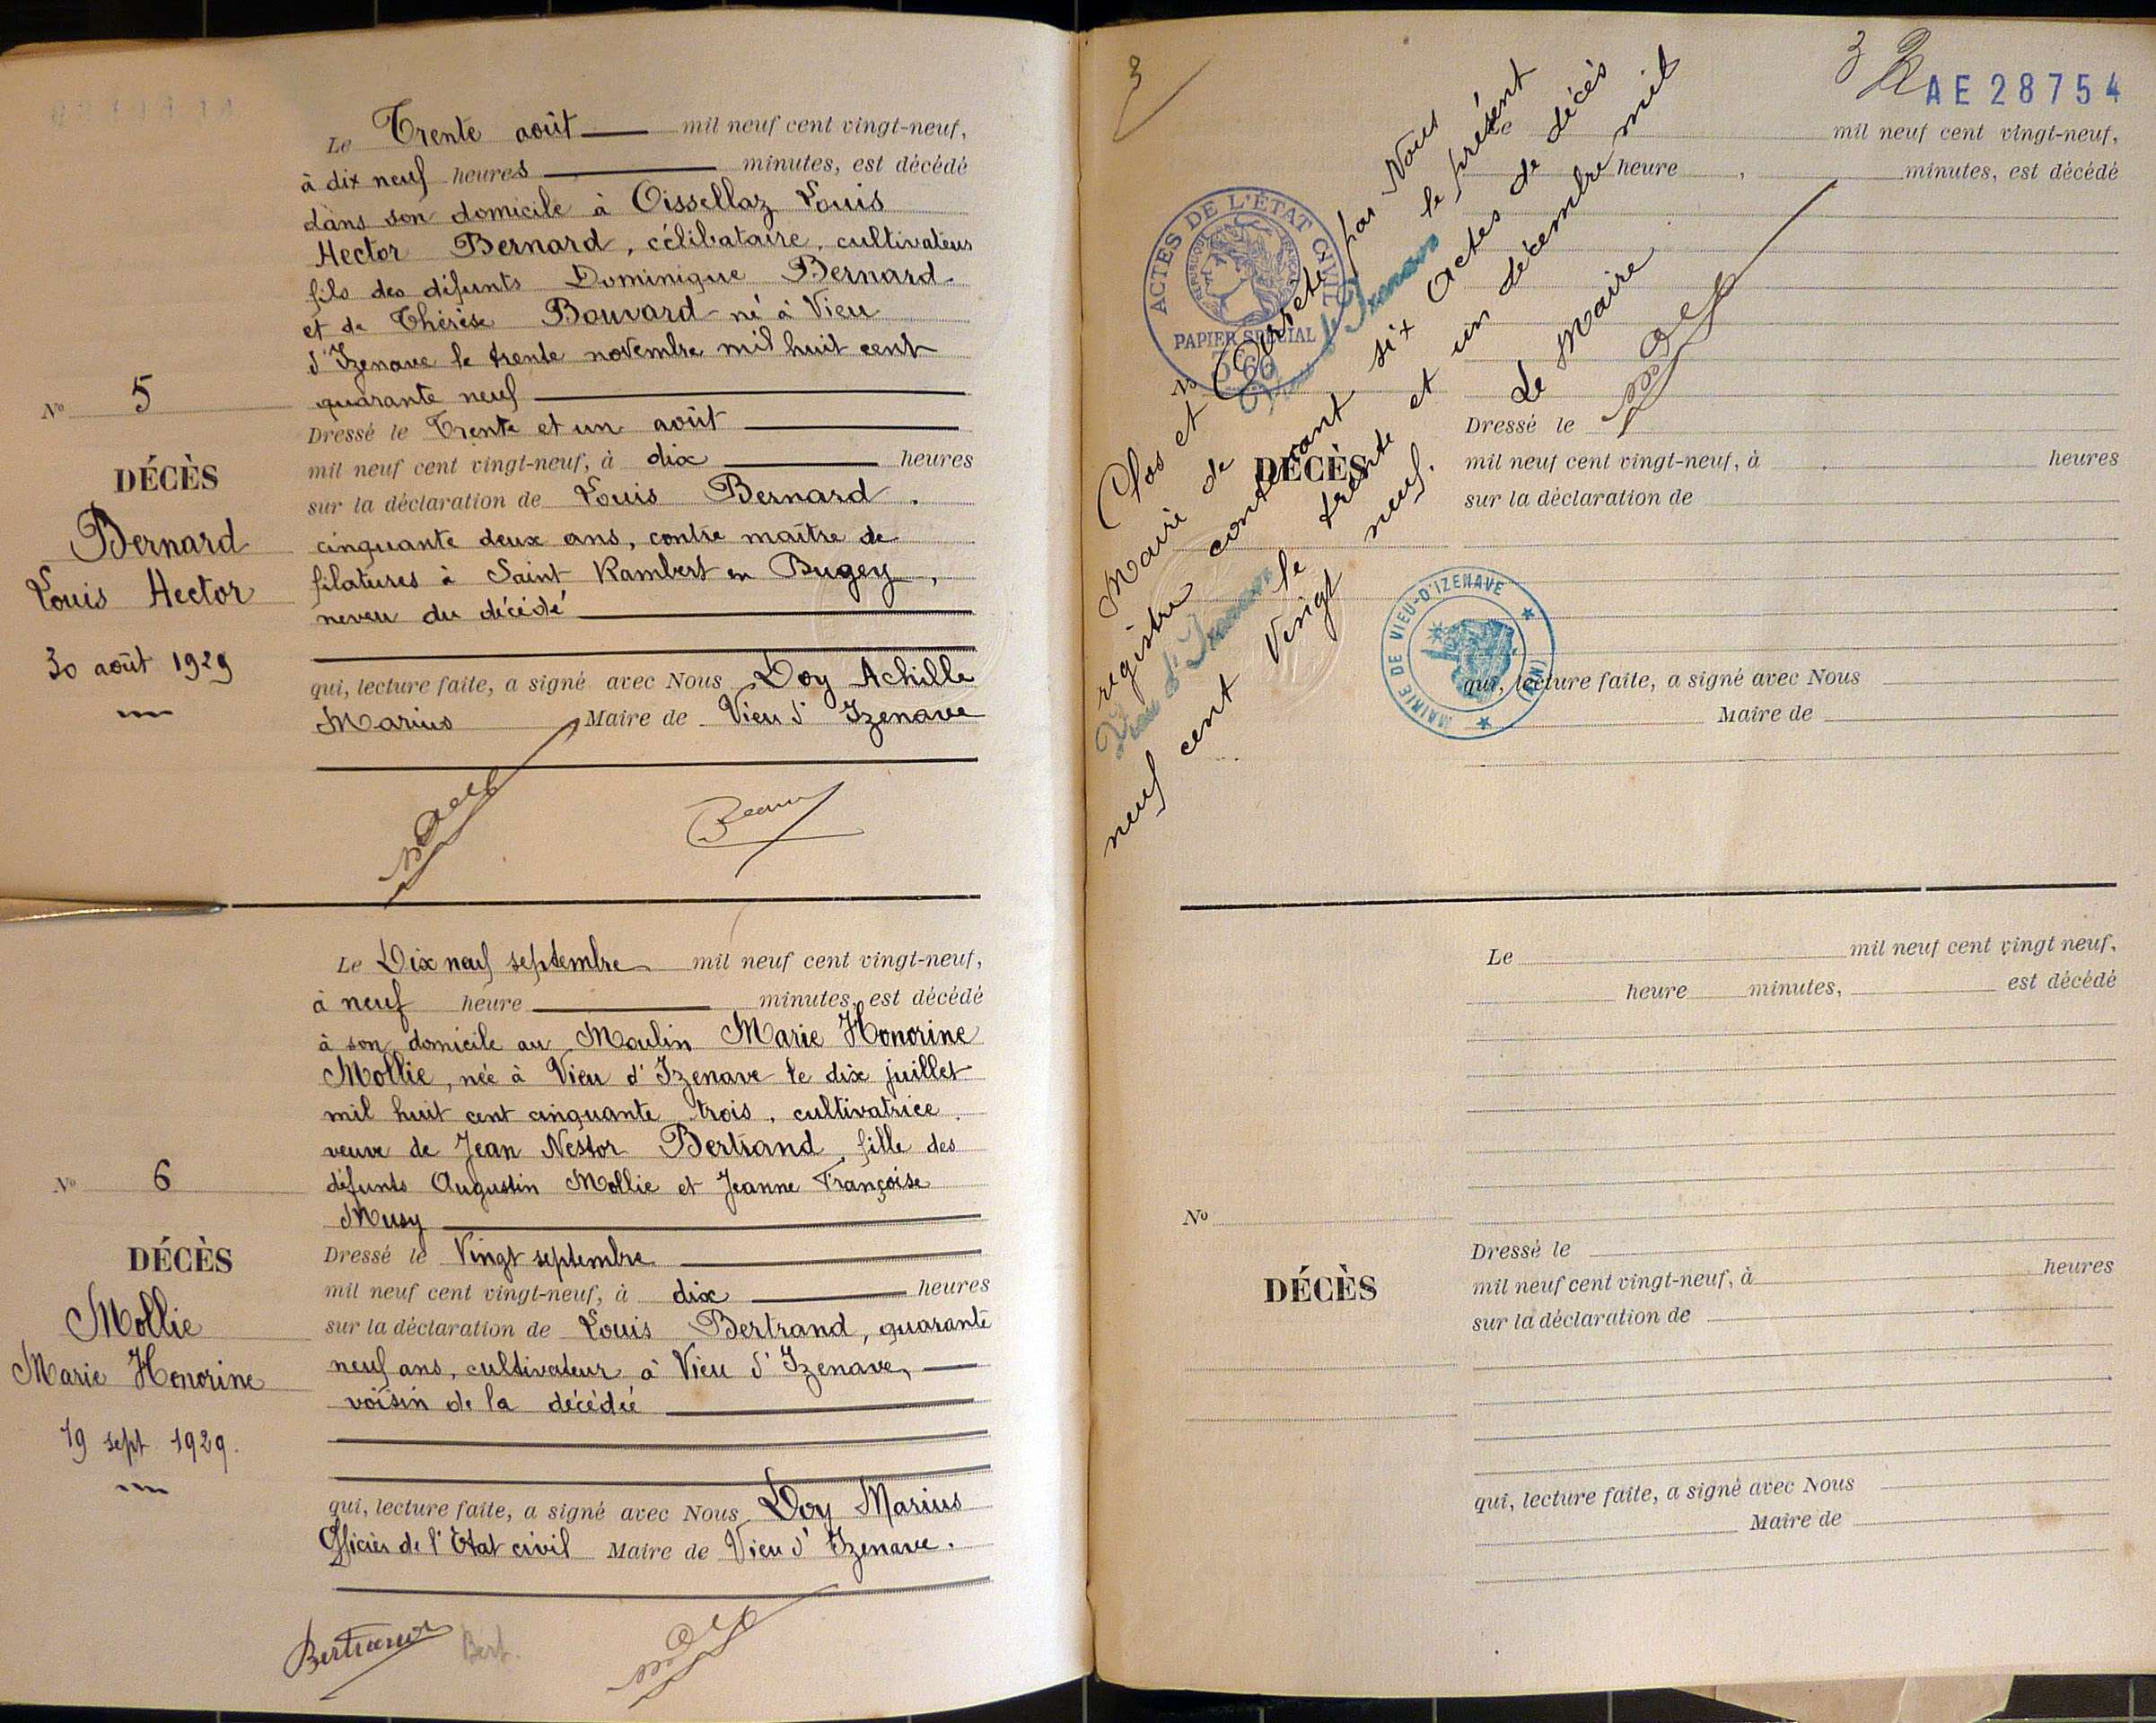 Le Trente août mil neuf cent vingt-neuf,
à dix neuf heures minutes, est décédé
dans son domicile à Oissellaz Louis
Hector Bernard, célibataire, cultivateur
fils des défunts Dominique Bernard
et de Thérèse Bouvard né à Vieu
d'Izenave le trente novembre mil huit cent
quarante neuf
Nº 5
Dressé le Trente et un août
mil neuf cent vingt-neuf, à dix heures
DÉCÈS
sur la déclaration de Louis Bernard.
Bernard
cinquante deux ans, contre maître de
Louis Hector
filatures à Saint Rambert en Bugey,
neveu du décédé
30 août 1929
qui, lecture faite, a signé avec Nous Doy Achille
Marius Maire de Vieu d'Izenave
Le Dix neuf septembre mil neuf cent vingt-neuf,
à neuf heure minutes, est décédé
à son domicile au Moulin Marie Honorine
Mollie, née à Vieu d'Izenave le dix juillet
mil huit cent cinquante trois, cultivatrice
veuve de Jean Nestor Bertrand, fille des
Nº 6
défunts Augustin Mollie et Jeanne Françoise
Musy
DÉCÈS
Dressé le Vingt septembre
mil neuf cent vingt-neuf, à dix heures
Mollie
sur la déclaration de Louis Bertrand, quarante
Marie Honorine
neuf ans, cultivateur à Vieu d'Izenave,
voisin de la décédée
19 sept 1929.
qui, lecture faite, a signé avec Nous Doy Marius
Officier de l'Etat civil Maire de Vieu d'Izenave.
Bertrand
Bert.
3
3
AE 28754
Le mil neuf cent vingt-neuf,
heure, minutes, est décédé
ACTES DE L'ÉTAT CIVIL
RÉPUBLIQUE FRANÇAISE
PAPIER SPÉCIAL
3F60
Nº
Clos et arrêté par Nous
Maire de Vieu d'Izenave le présent
registre contenant six Actes de décès
Vieu d'Izenave le trente et un décembre mil
neuf cent vingt neuf.
Le Maire
Doy
DÉCÈS
Dressé le
mil neuf cent vingt-neuf, à heures
sur la déclaration de
MAIRIE DE VIEU-D'IZENAVE (AIN)
qui, lecture faite, a signé avec Nous
Maire de
Le mil neuf cent vingt neuf,
heure minutes, est décédé
Nº
DÉCÈS
Dressé le
mil neuf cent vingt-neuf, à heures
sur la déclaration de
qui, lecture faite, a signé avec Nous
Maire de